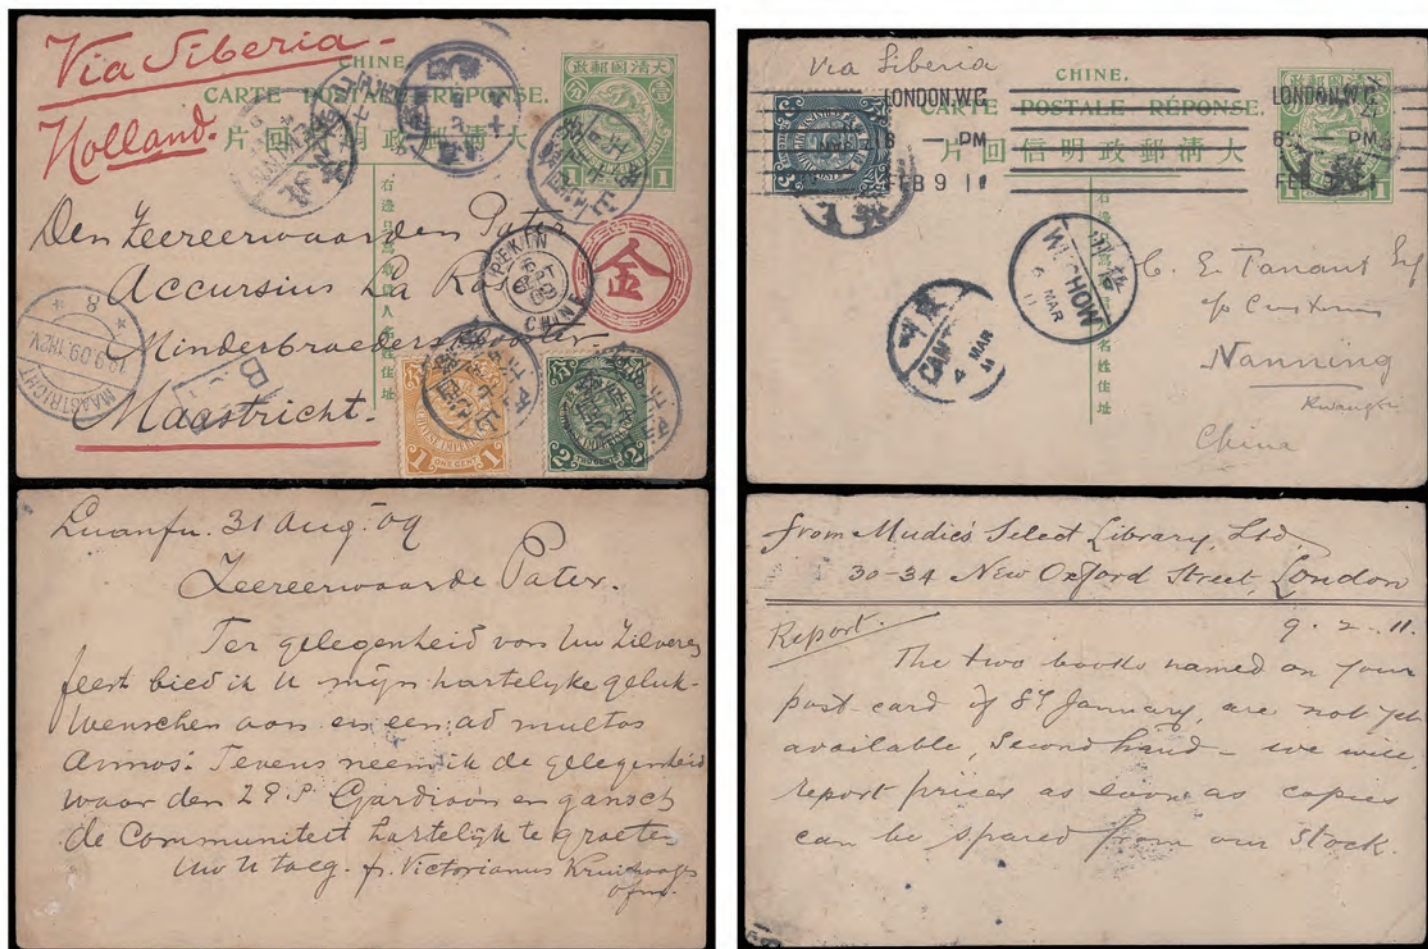 Via Siberia -
Holland.
CHINE.
CARTE POSTALE RÉPONSE.
片回信明政郵清大
政郵國清大
壹分
1 1
右邊只
人名姓住址
Den Zeereerwaarden Pater
Accursius La Ros
Minderbroedersklooster.
Maastricht.
PEKIN
CHINE
金
MAASTRICHT
8
18.9.09.11-12V.
B
1 ONE CENT 1
2 TWO CENTS 2
Luanfu. 31 Aug. 09
Zeereerwaarde Pater.
Ter gelegenheid van Uw Zilveren
feest bied ik U mijn hartelyke geluk-
wenschen aan en een: ad multos
Annos! Tevens neem ik de gelegenheid
waar den Z.P. Gardiaan en gansch
de Communiteit hartelijk te groeten
Uw U toeg. fr. Victorianus
ofm.
Via Siberia
CHINE.
CARTE POSTALE RÉPONSE.
片回信明政郵清大
政郵國清大
1 1
3 3
LONDON, W.C.
6 — PM
FEB 9 11
LONDON, W.C.
6 — PM
名姓住址
WUCHOW
6
MAR
11
CANT
4
MAR
11
C. E. Tanant Esq
c/o Customs
Nanning
Kwangsi
China
from Mudie's Select Library, Ltd,
30-34 New Oxford Street, London
Report.
9. 2. 11.
The two books named on your
post-card of 8th January, are not yet
available, Second hand - we will
report prices as soon as copies
can be spared from our stock.